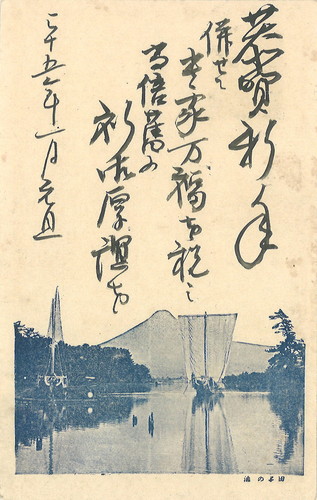 恭賀新年
併せて
貴家万福を祝し
尚倍舊の
御厚誼を
祈
三十五年一月元旦
田子の浦